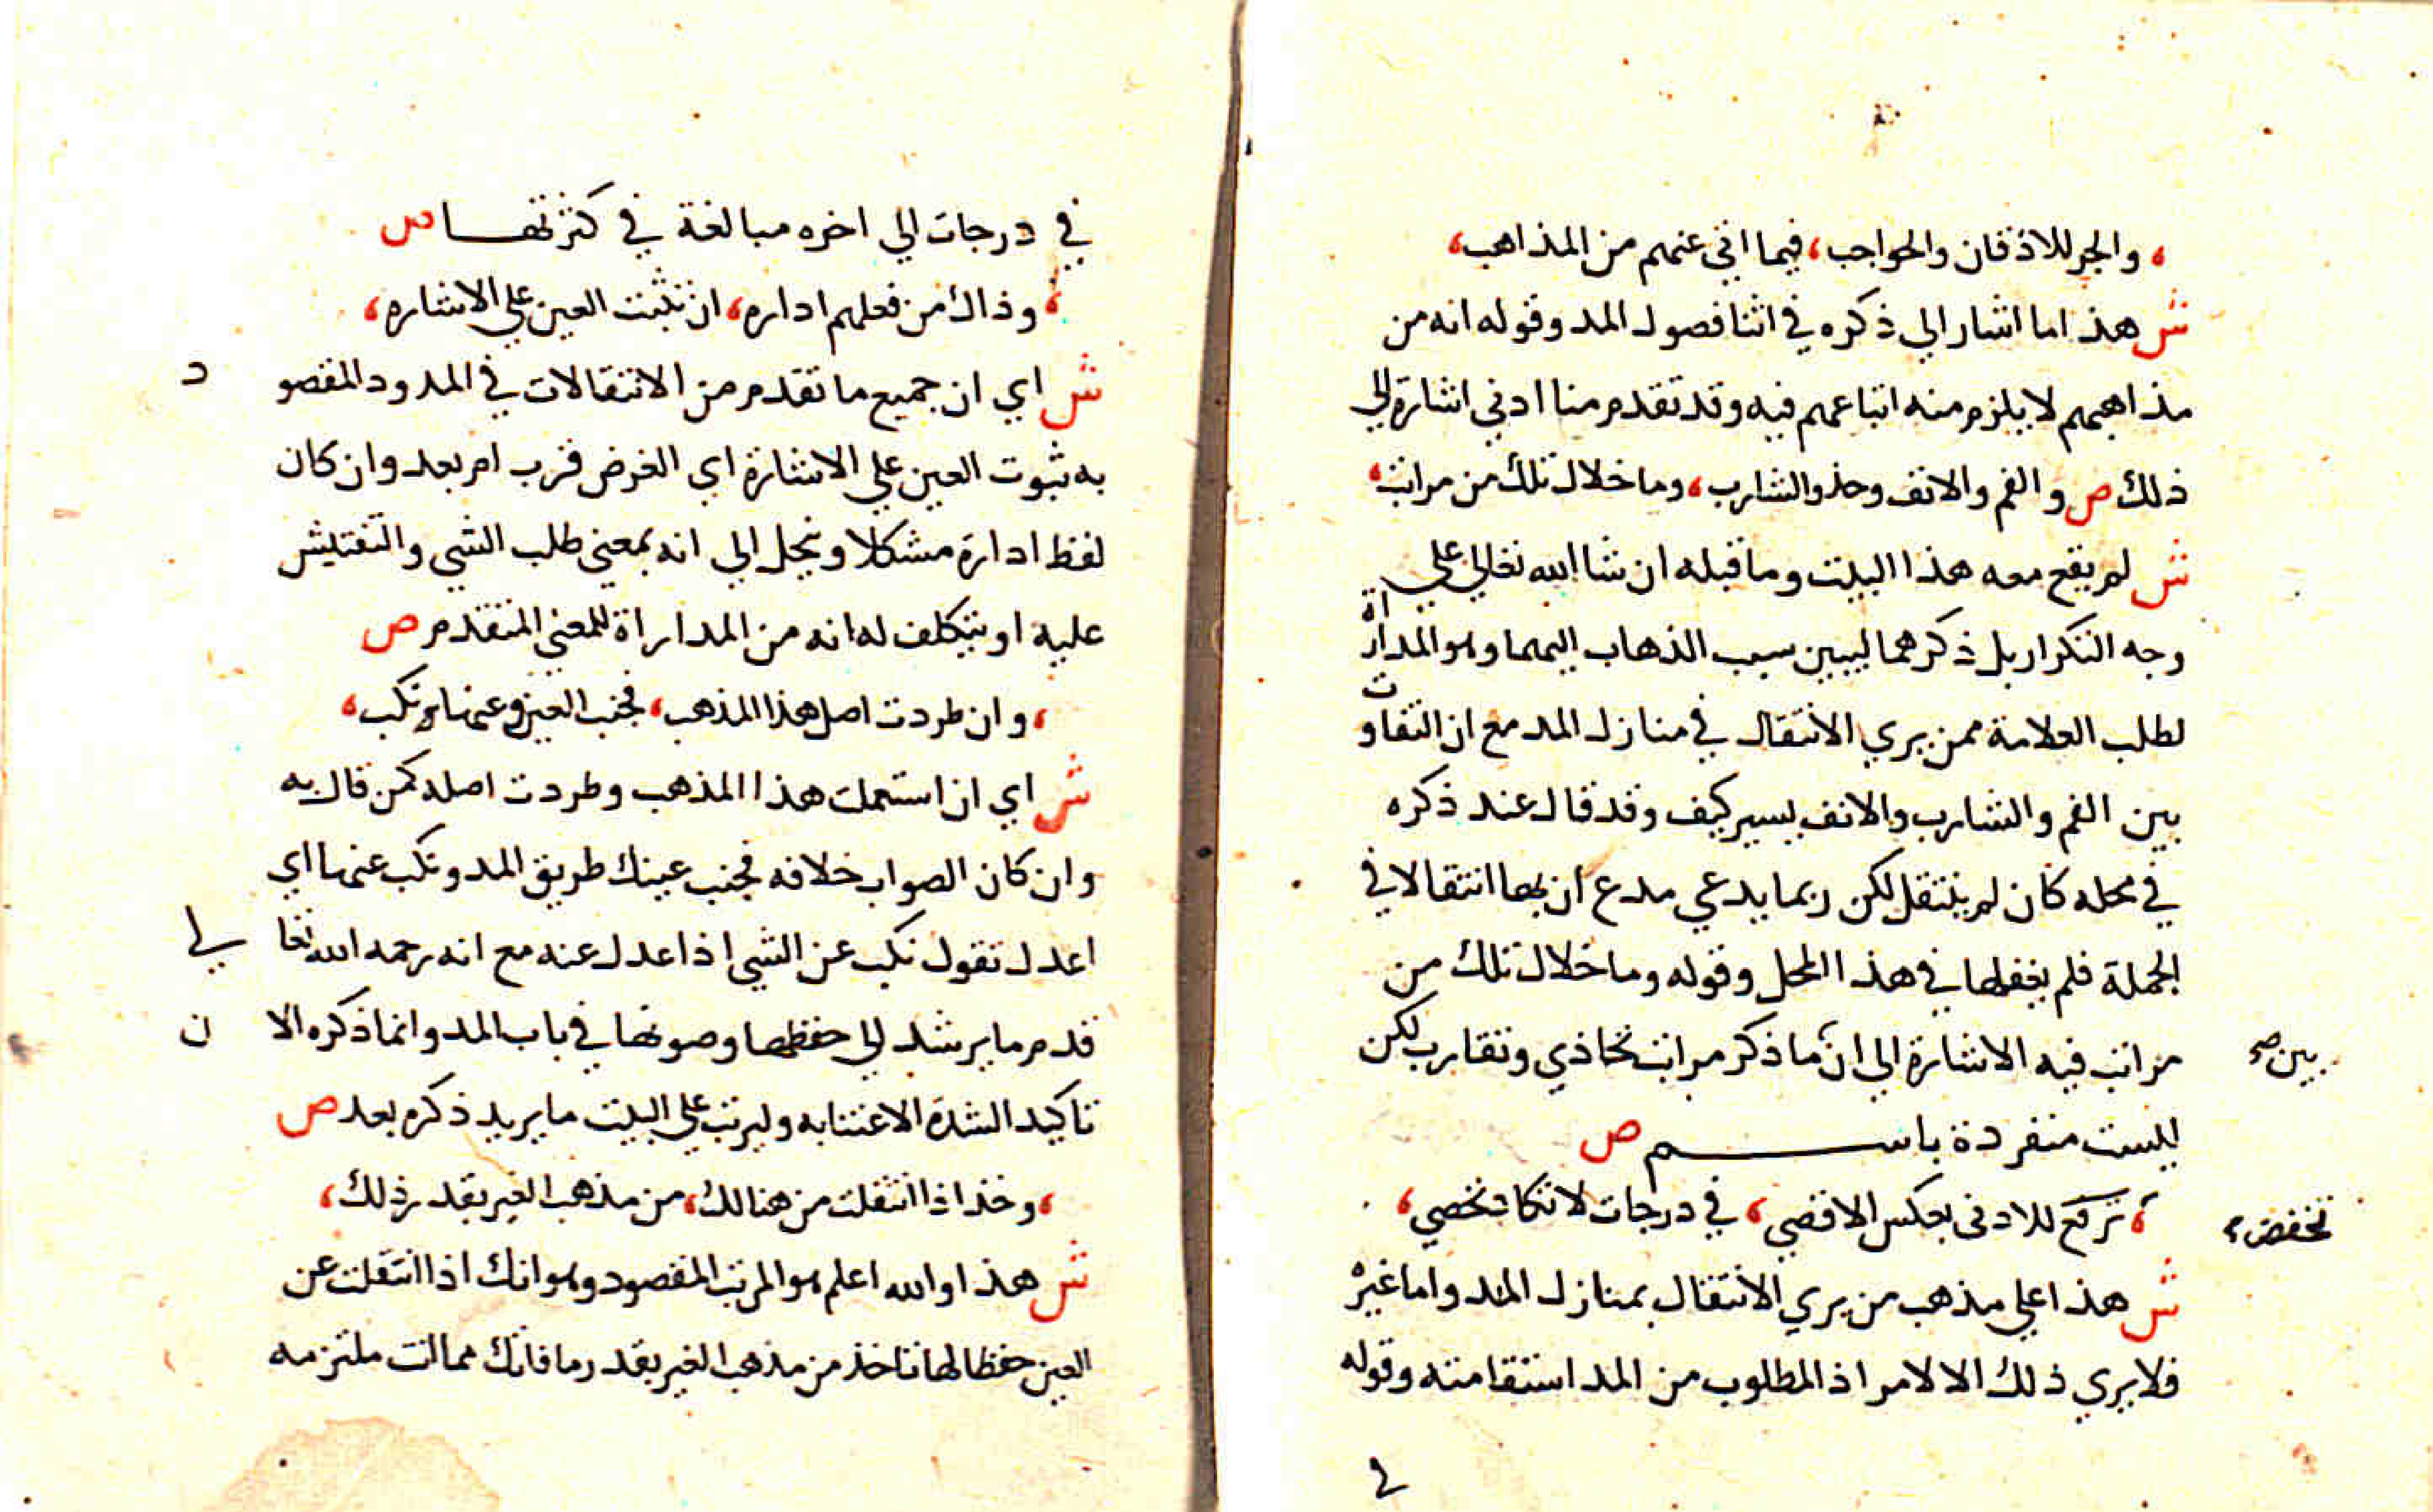 ، والجر للاذقان والحواجب، فيما اتى عنهم من المذاهب،
ش هذا ما اشار الي ذكره في اثنا فصول المد وقوله انه من
مذاهبهم لا يلزم منه اتباعهم فيه وقد تقدم منا ادني اشارة الي
ذلك ص والفم والانف وحذو الشارب، وما خلال تلك من مراتب،
ش لم يقع معه هذا البيت وما قبله ان شا الله تعالي علي
وجه التكرار بل ذكرهما ليبين سبب الذهاب اليهما وهو المداراة
لطلب العلامة ممن يري الانتقال في منازل المد مع ان التفاوت
بين الفم والشارب والانف يسير كيف وقد قال عند ذكره
في محله كان لم ينتقل لكن ربما يدعي مدع ان بها انتقالا في
الجملة فلم يغفلها في هذا المحل وقوله وما خلال تلك من
مراتب فيه الاشارة الي ان ما ذكر مراتب تحاذي وتقارب لكن
بين صح
ليست منفردة باسم ص
، ترفع للادنى بعكس الاقصي، في درجات لا تكاد تحصي،
تخفض
ش هذا علي مذهب من يري الانتقال بمنازل المد واما غيره
فلا يري ذلك الا لامر اذ المطلوب من المد استقامته وقوله
في
في درجات الي اخره مبالغة في كثرتها ص
، وذاك من فعلهم اداره، ان تثبت العين علي الاشاره،
ش اي ان جميع ما تقدم من الانتقالات في المدود المقصود
به ثبوت العين علي الاشارة اي الغرض قرب ام بعد وان كان
لفظ ادارة مشكلا ويحل الي انه بمعني طلب الشي والتفتيش
عليه او يتكلف له انه من المداراة للمعني المتقدم ص
، وان طردت اصل هذا المذهب، فجنب العين وعنها نكب،
ش اي ان استعملت هذا المذهب وطردت اصله كمن قال به
وان كان الصواب خلافه فجنب عينك طريق المد ونكب عنها اي
اعدل تقول نكب عن الشي اذا عدل عنه مع انه رحمه الله تعالي
قدم ما يرشد الي حفظها وصونها في باب المد وانما ذكره الان
تاكيدا لشدة الاعتنا به وليرتب علي البيت ما يريد ذكره بعد ص
، وخذ اذا انتقلت من هنالك، من مذهب الغير بقدر ذلك،
ش هذا والله اعلم هو المرتب المقصود وهو انك اذا انتقلت عن
العين حفظا لها تاخذ من مذهب الغير بقدر ما فاتك مما انت ملتزمه